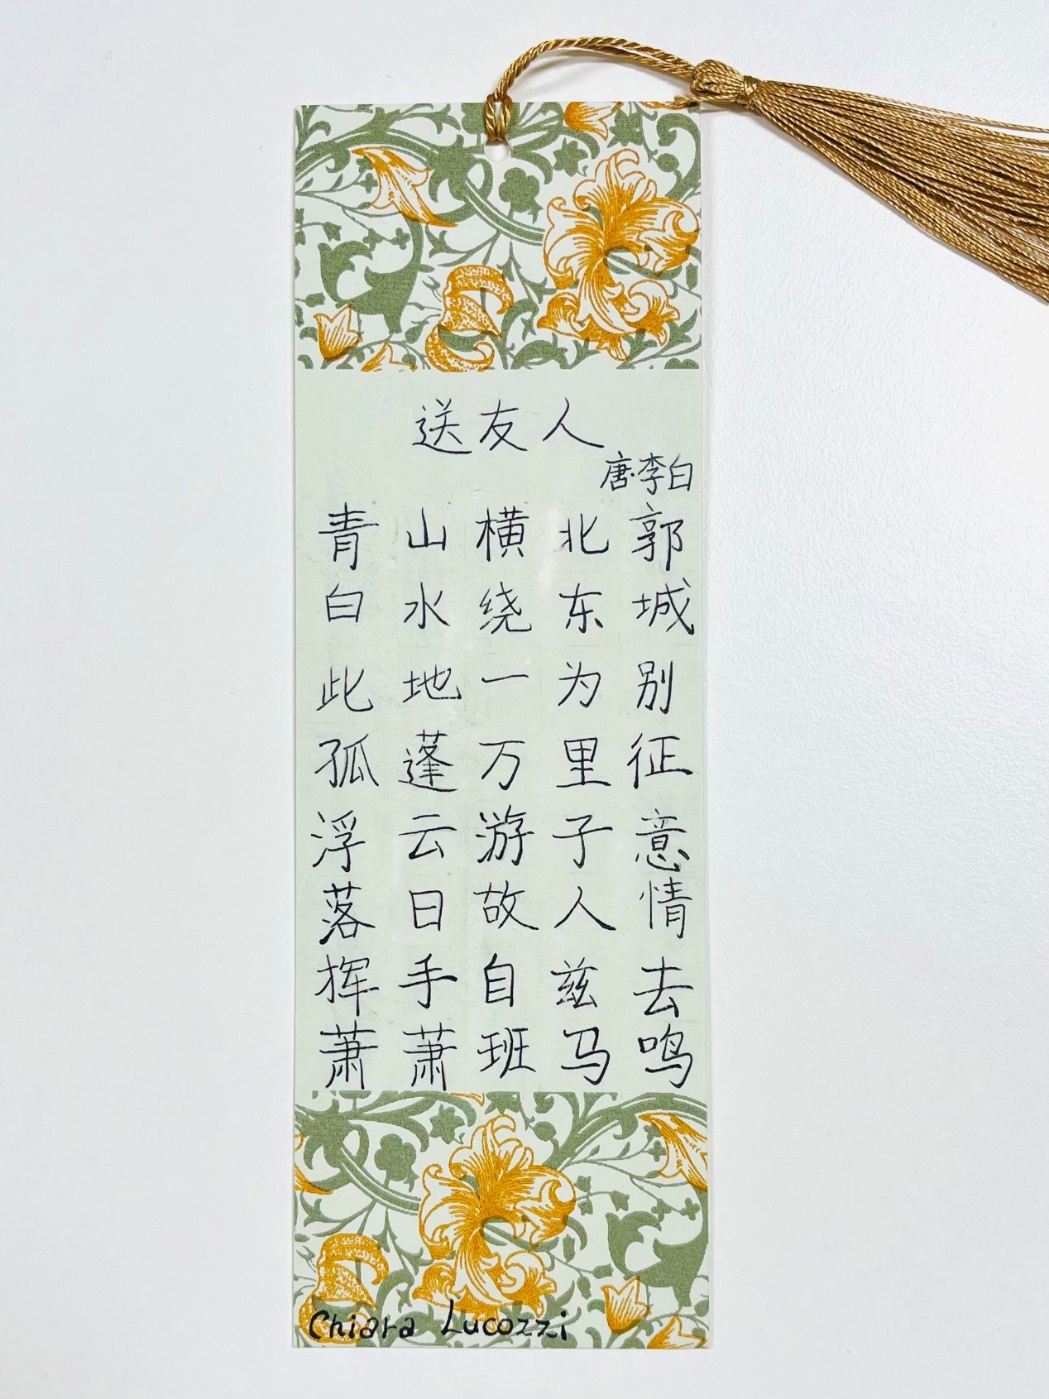 送友人
唐·李白
青山横北郭
白水绕东城
此地一为别
孤蓬万里征
浮云游子意
落日故人情
挥手自兹去
萧萧班马鸣
Chiara Lucozzi